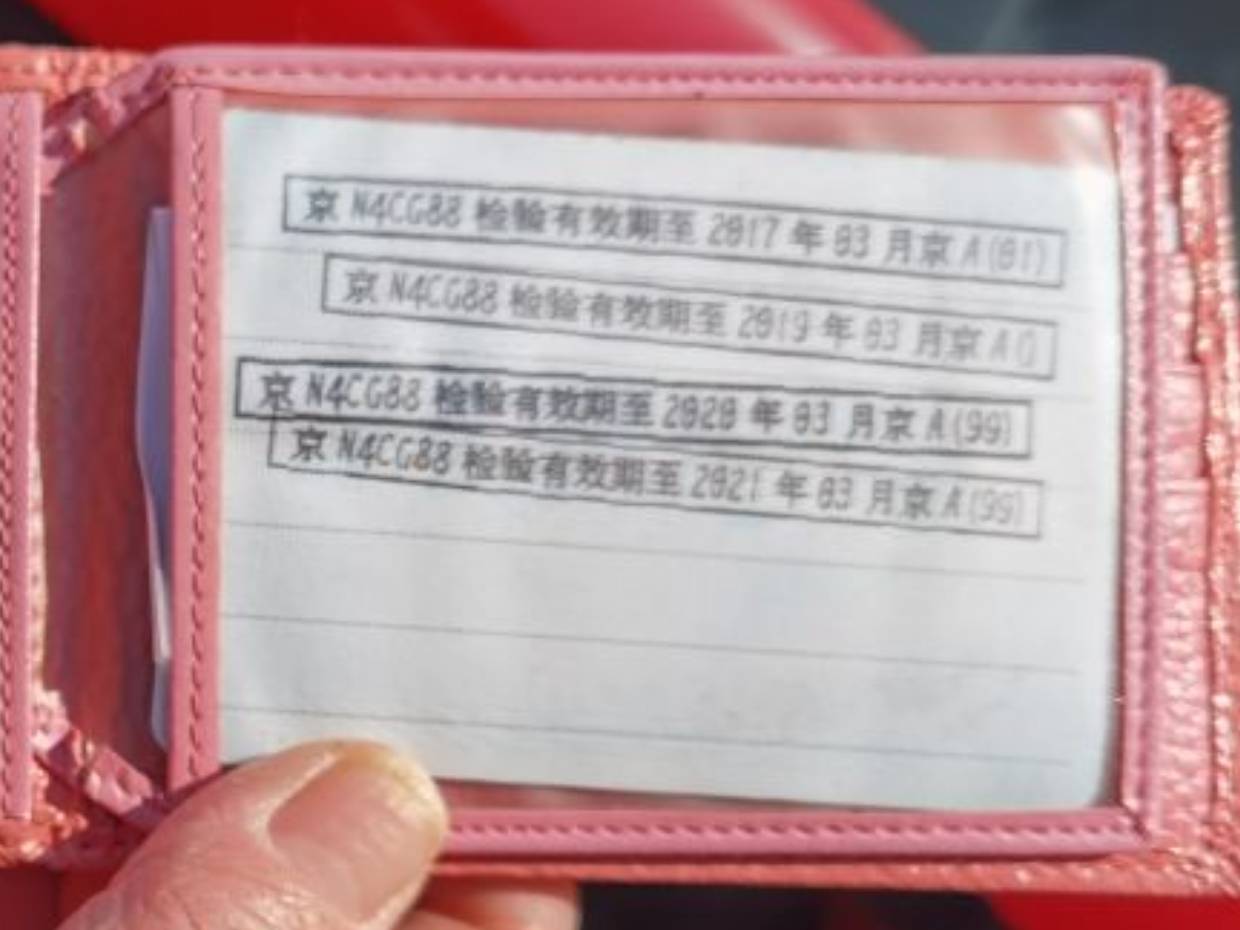 京 N4CG88 检验有效期至 2017 年 03 月京 A(01)
京 N4CG88 检验有效期至 2019 年 03 月京 A()
京 N4CG88 检验有效期至 2020 年 03 月京 A(99)
京 N4CG88 检验有效期至 2021 年 03 月京 A(99)